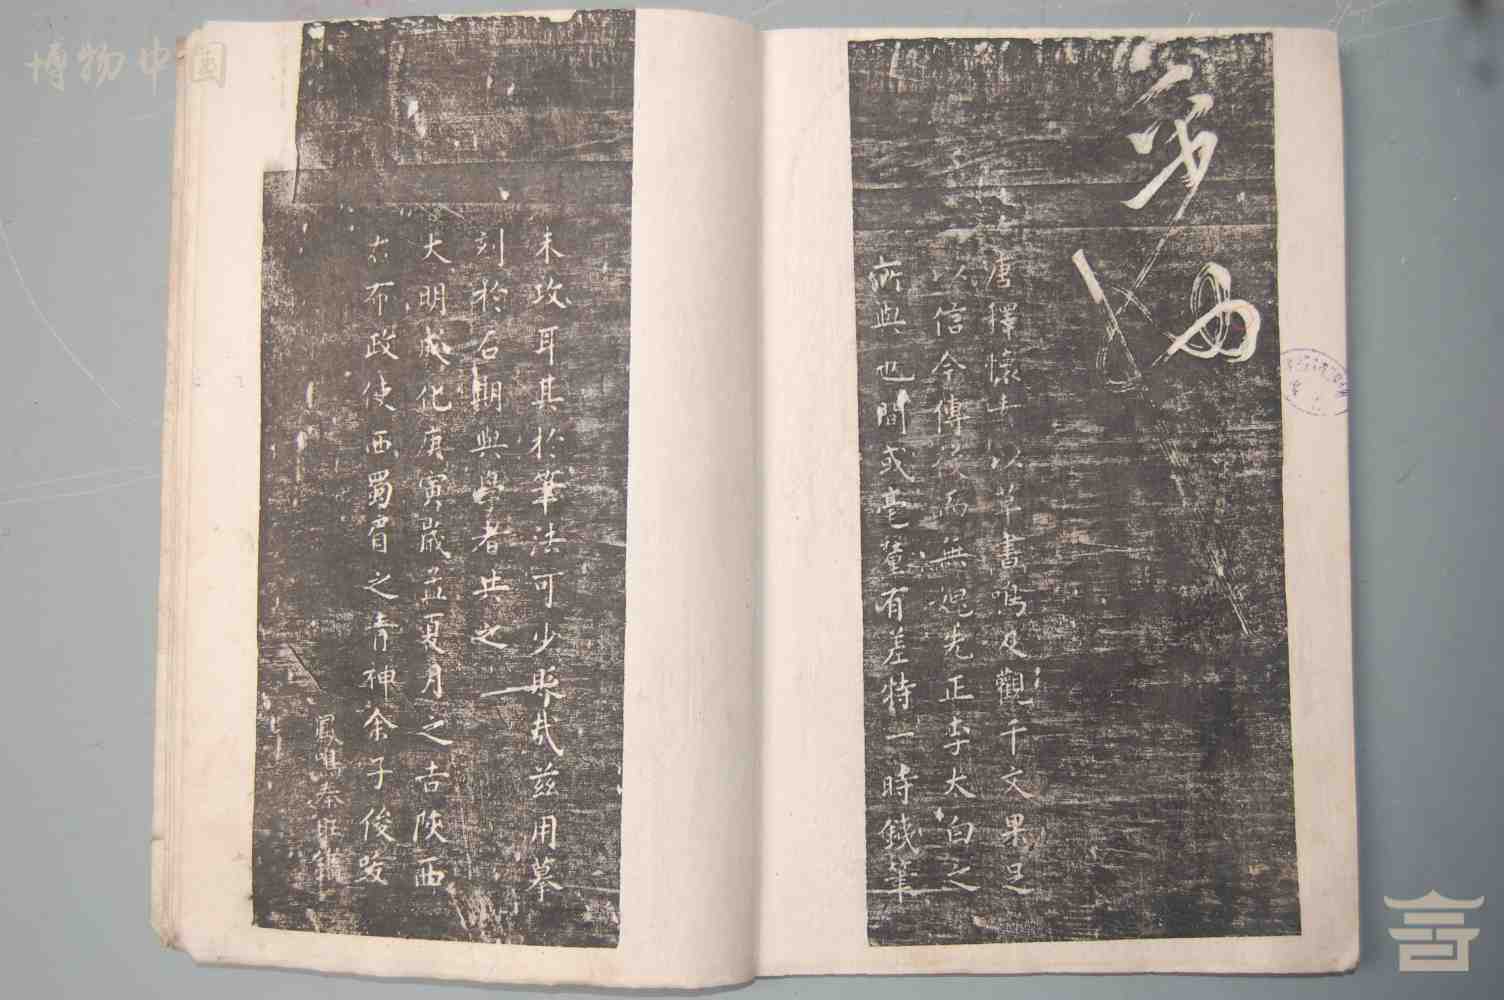 博物中国
唐釋懷素以草書鳴及觀千文果足
以信今傳後而無愧先正李太白之
所與也間或毫釐有差特一時鋟筆
未攻耳其於筆法可少哉茲用摹
刻於石期與學者共之
大明成化庚寅歲孟夏月之吉陝西
右布政使西蜀眉之青神余子俊跋
鳳鳴秦旺鐫